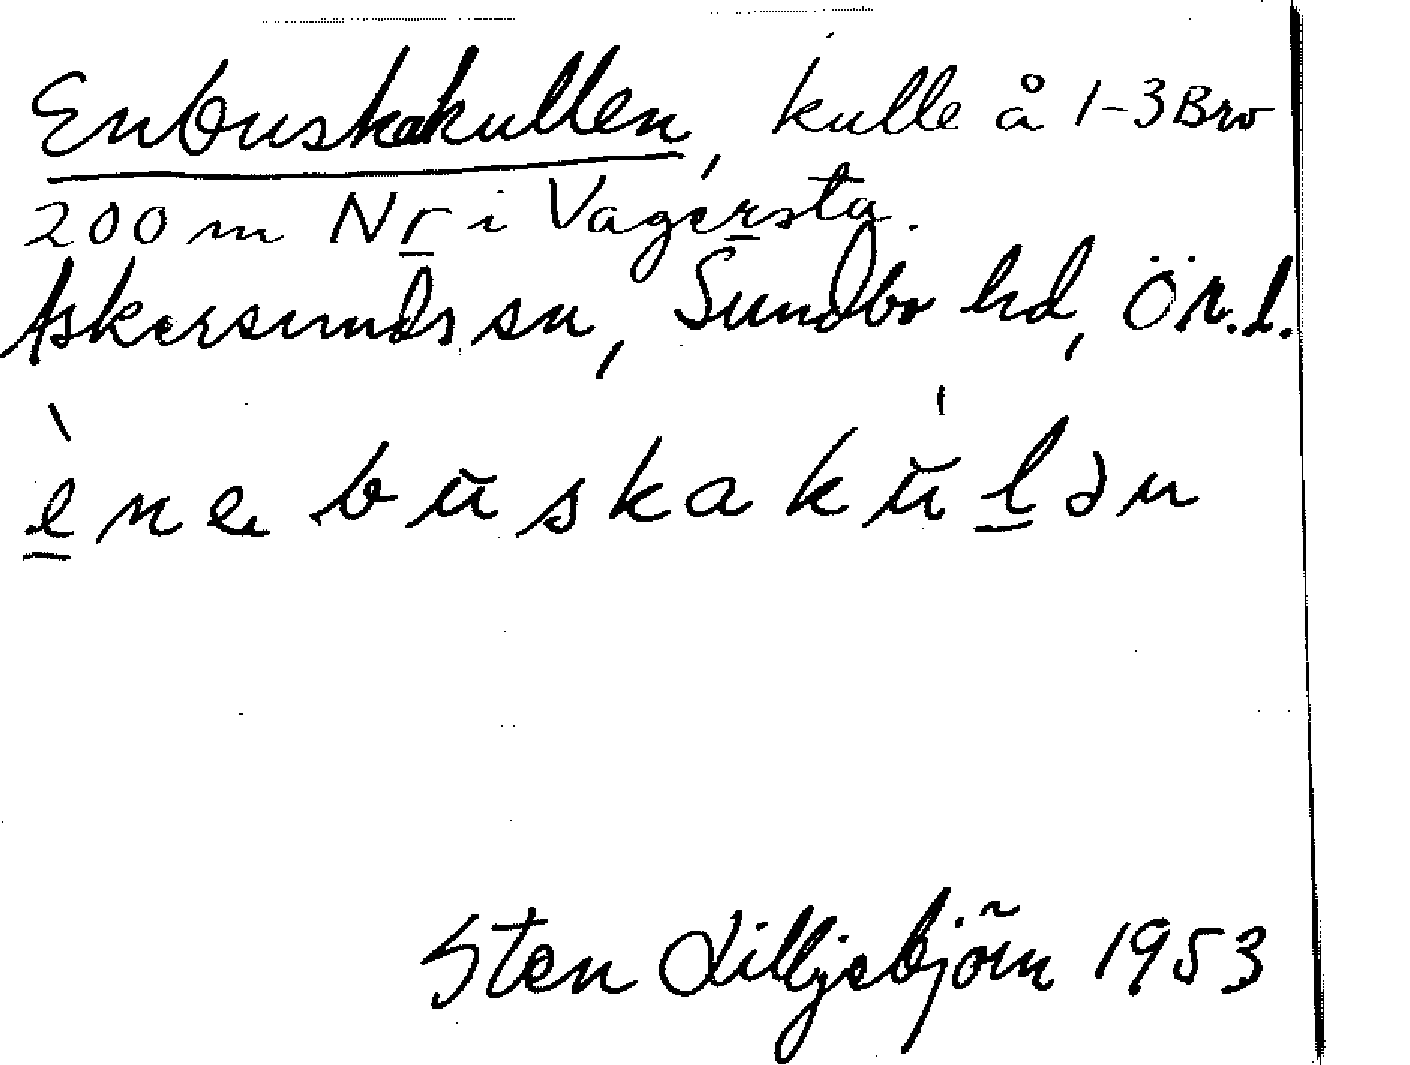 Enbuskakullen, kulle å 1-3 Bro
200 m Nr i Vagersta.
Askersunds sn, Sundbo hd, Ör.l.
ènebu̇skakul̲ən
Sten Lilljebjörn 1953